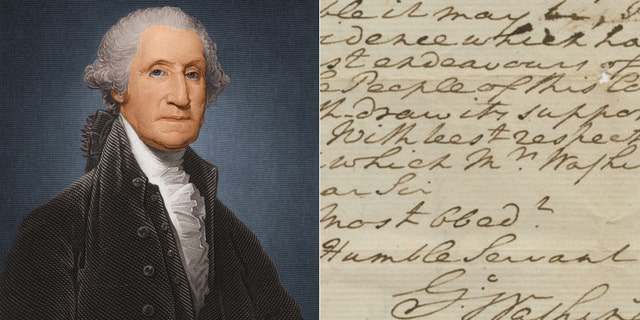 ble it may be, I
idence which ha
st endeavours of
e People of this
th-draw its suppo
With best respec
which Mrs. Washi
ar Sir
most obed.t
Humble Servant
Go. Washin